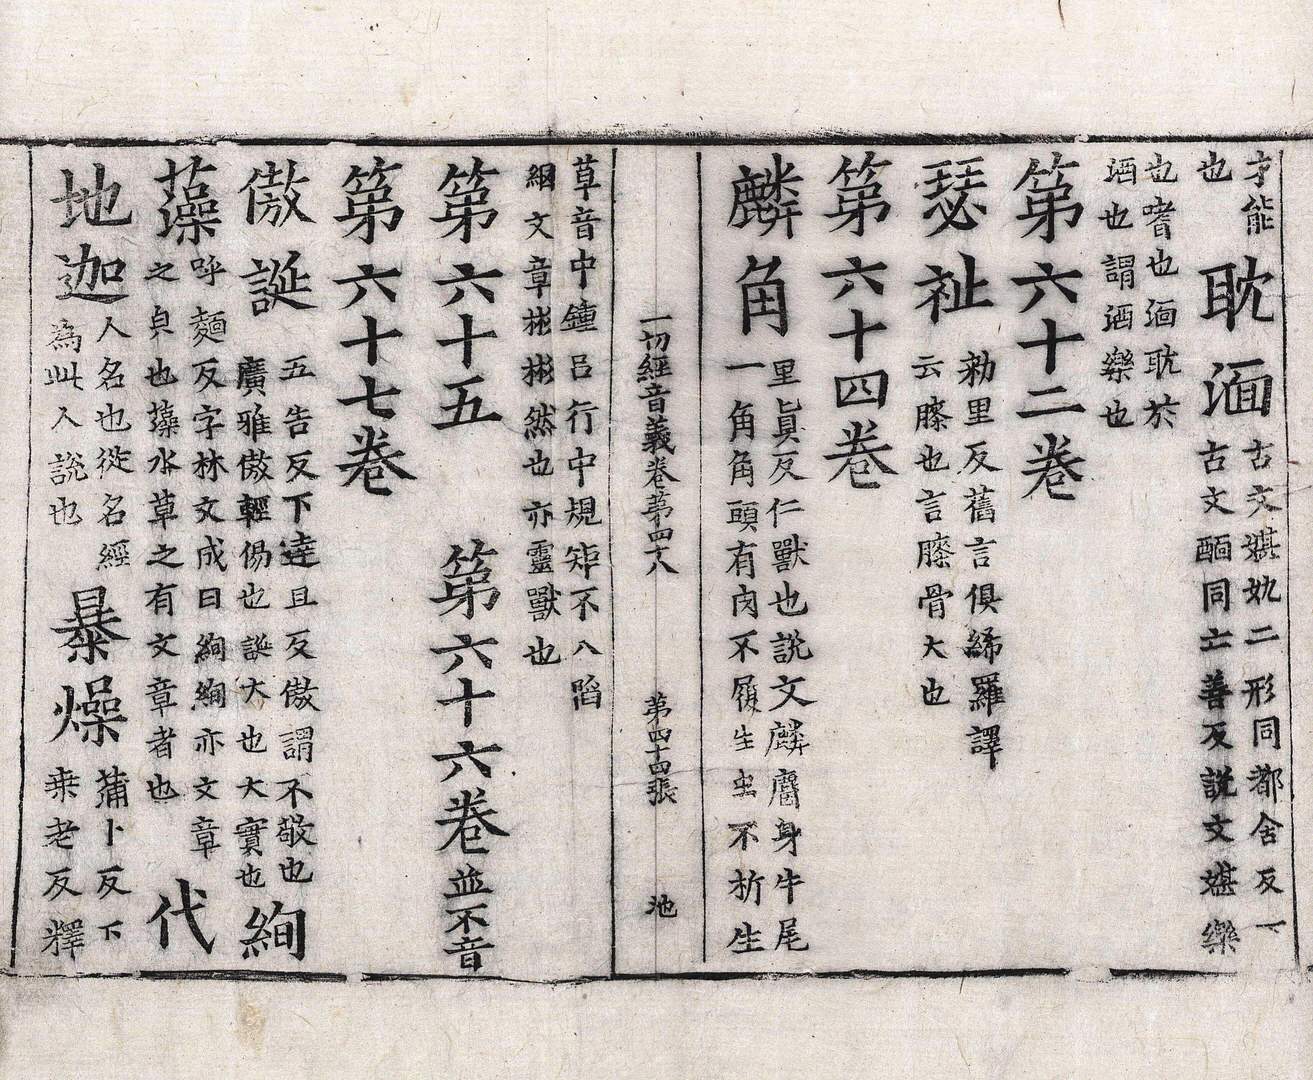 才能
也
耽湎
古文媅妉二形同都含反下
古文酾同亡善反說文媅樂
也嗜也湎耽於
酒也謂酒樂也
第六十二卷
瑟祉
勑里反舊言俱絺羅譯
云膝也言膝骨大也
第六十四卷
麟角
里真反仁獸也說文麟麕身牛尾
一角角頭有肉不履生虫不折生
一切經音義卷第四十八 第四十四張 池
草音中鍾呂行中規矩不入陷
網文章彬彬然也亦靈獸也
第六十五 第六十六卷並不音
第六十七卷
傲誕
五告反下達旦反傲謂不敬也
廣雅傲輕㑥也誕大也大實也
絢
藻
呼麵反字林文成曰絢絢亦文章
之皃也藻水草之有文章者也
代
地迦
人名也從名經
為此人說也
暴燥
蒲卜反下
桒老反釋